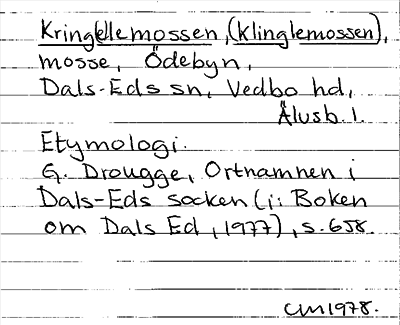 Kring(e)lemossen, (Klinglemossen),
mosse, Ödebyn,
Dals-Eds sn, Vedbo hd,
Älvsb. l.
Etymologi.
G. Drougge, Ortnamnen i
Dals-Eds socken (i: Boken
om Dals Ed, 1977), s. 658.
CM 1978.